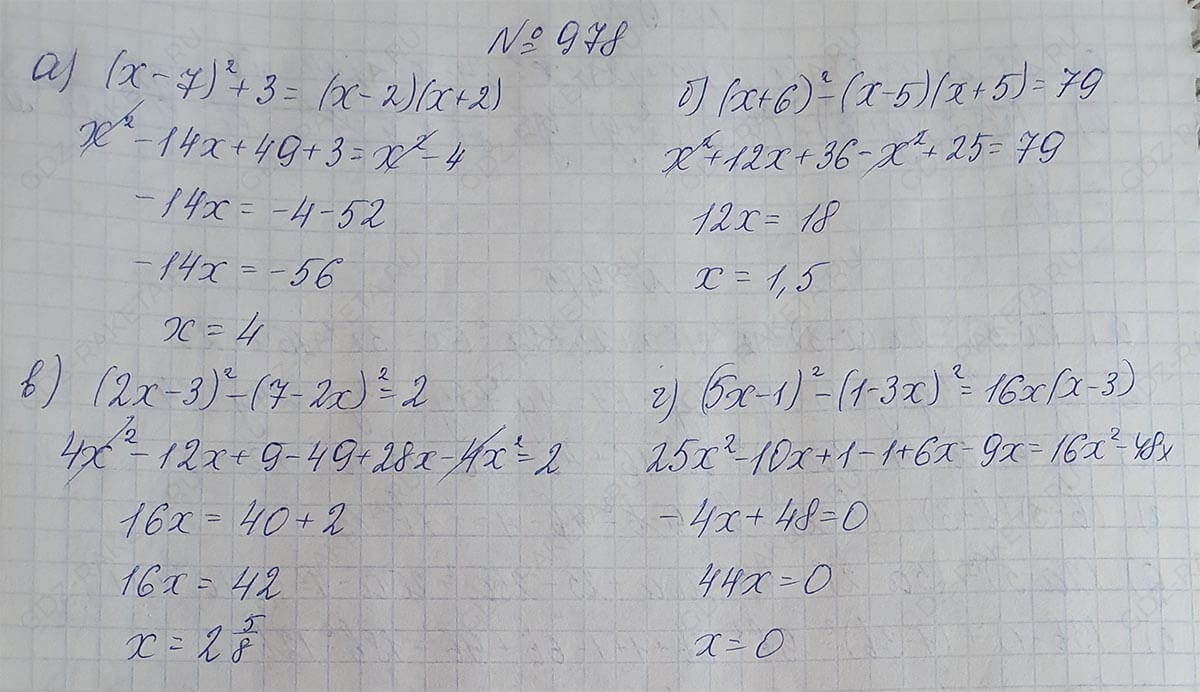 № 978
а) (x-7)²+3=(x-2)(x+2)
x²-14x+49+3=x²-4
-14x=-4-52
-14x=-56
x=4
б) (x+6)²-(x-5)(x+5)=79
x²+12x+36-x²+25=79
12x=18
x=1,5
в) (2x-3)²-(7-2x)²=2
4x²-12x+9-49+28x-4x²=2
16x=40+2
16x=42
x=2 5/8
г) (5x-1)²-(1-3x)²=16x(x-3)
25x²-10x+1-1+6x-9x=16x²-48x
-4x+48=0
44x=0
x=0